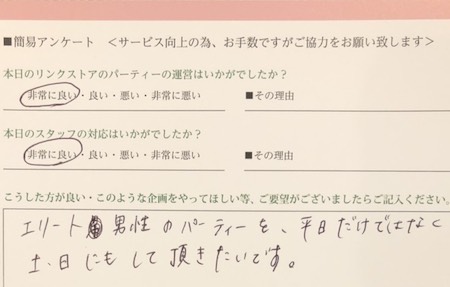 ■簡易アンケート ＜サービス向上の為、お手数ですがご協力をお願い致します＞
本日のリンクストアのパーティーの運営はいかがでしたか？
非常に良い・良い・悪い・非常に悪い ■その理由
本日のスタッフの対応はいかがでしたか？
非常に良い・良い・悪い・非常に悪い ■その理由
こうした方が良い・このような企画をやってほしい等、ご要望がございましたらご記入ください。
エリート男性のパーティーを、平日だけではなく
土、日にもして頂きたいです。